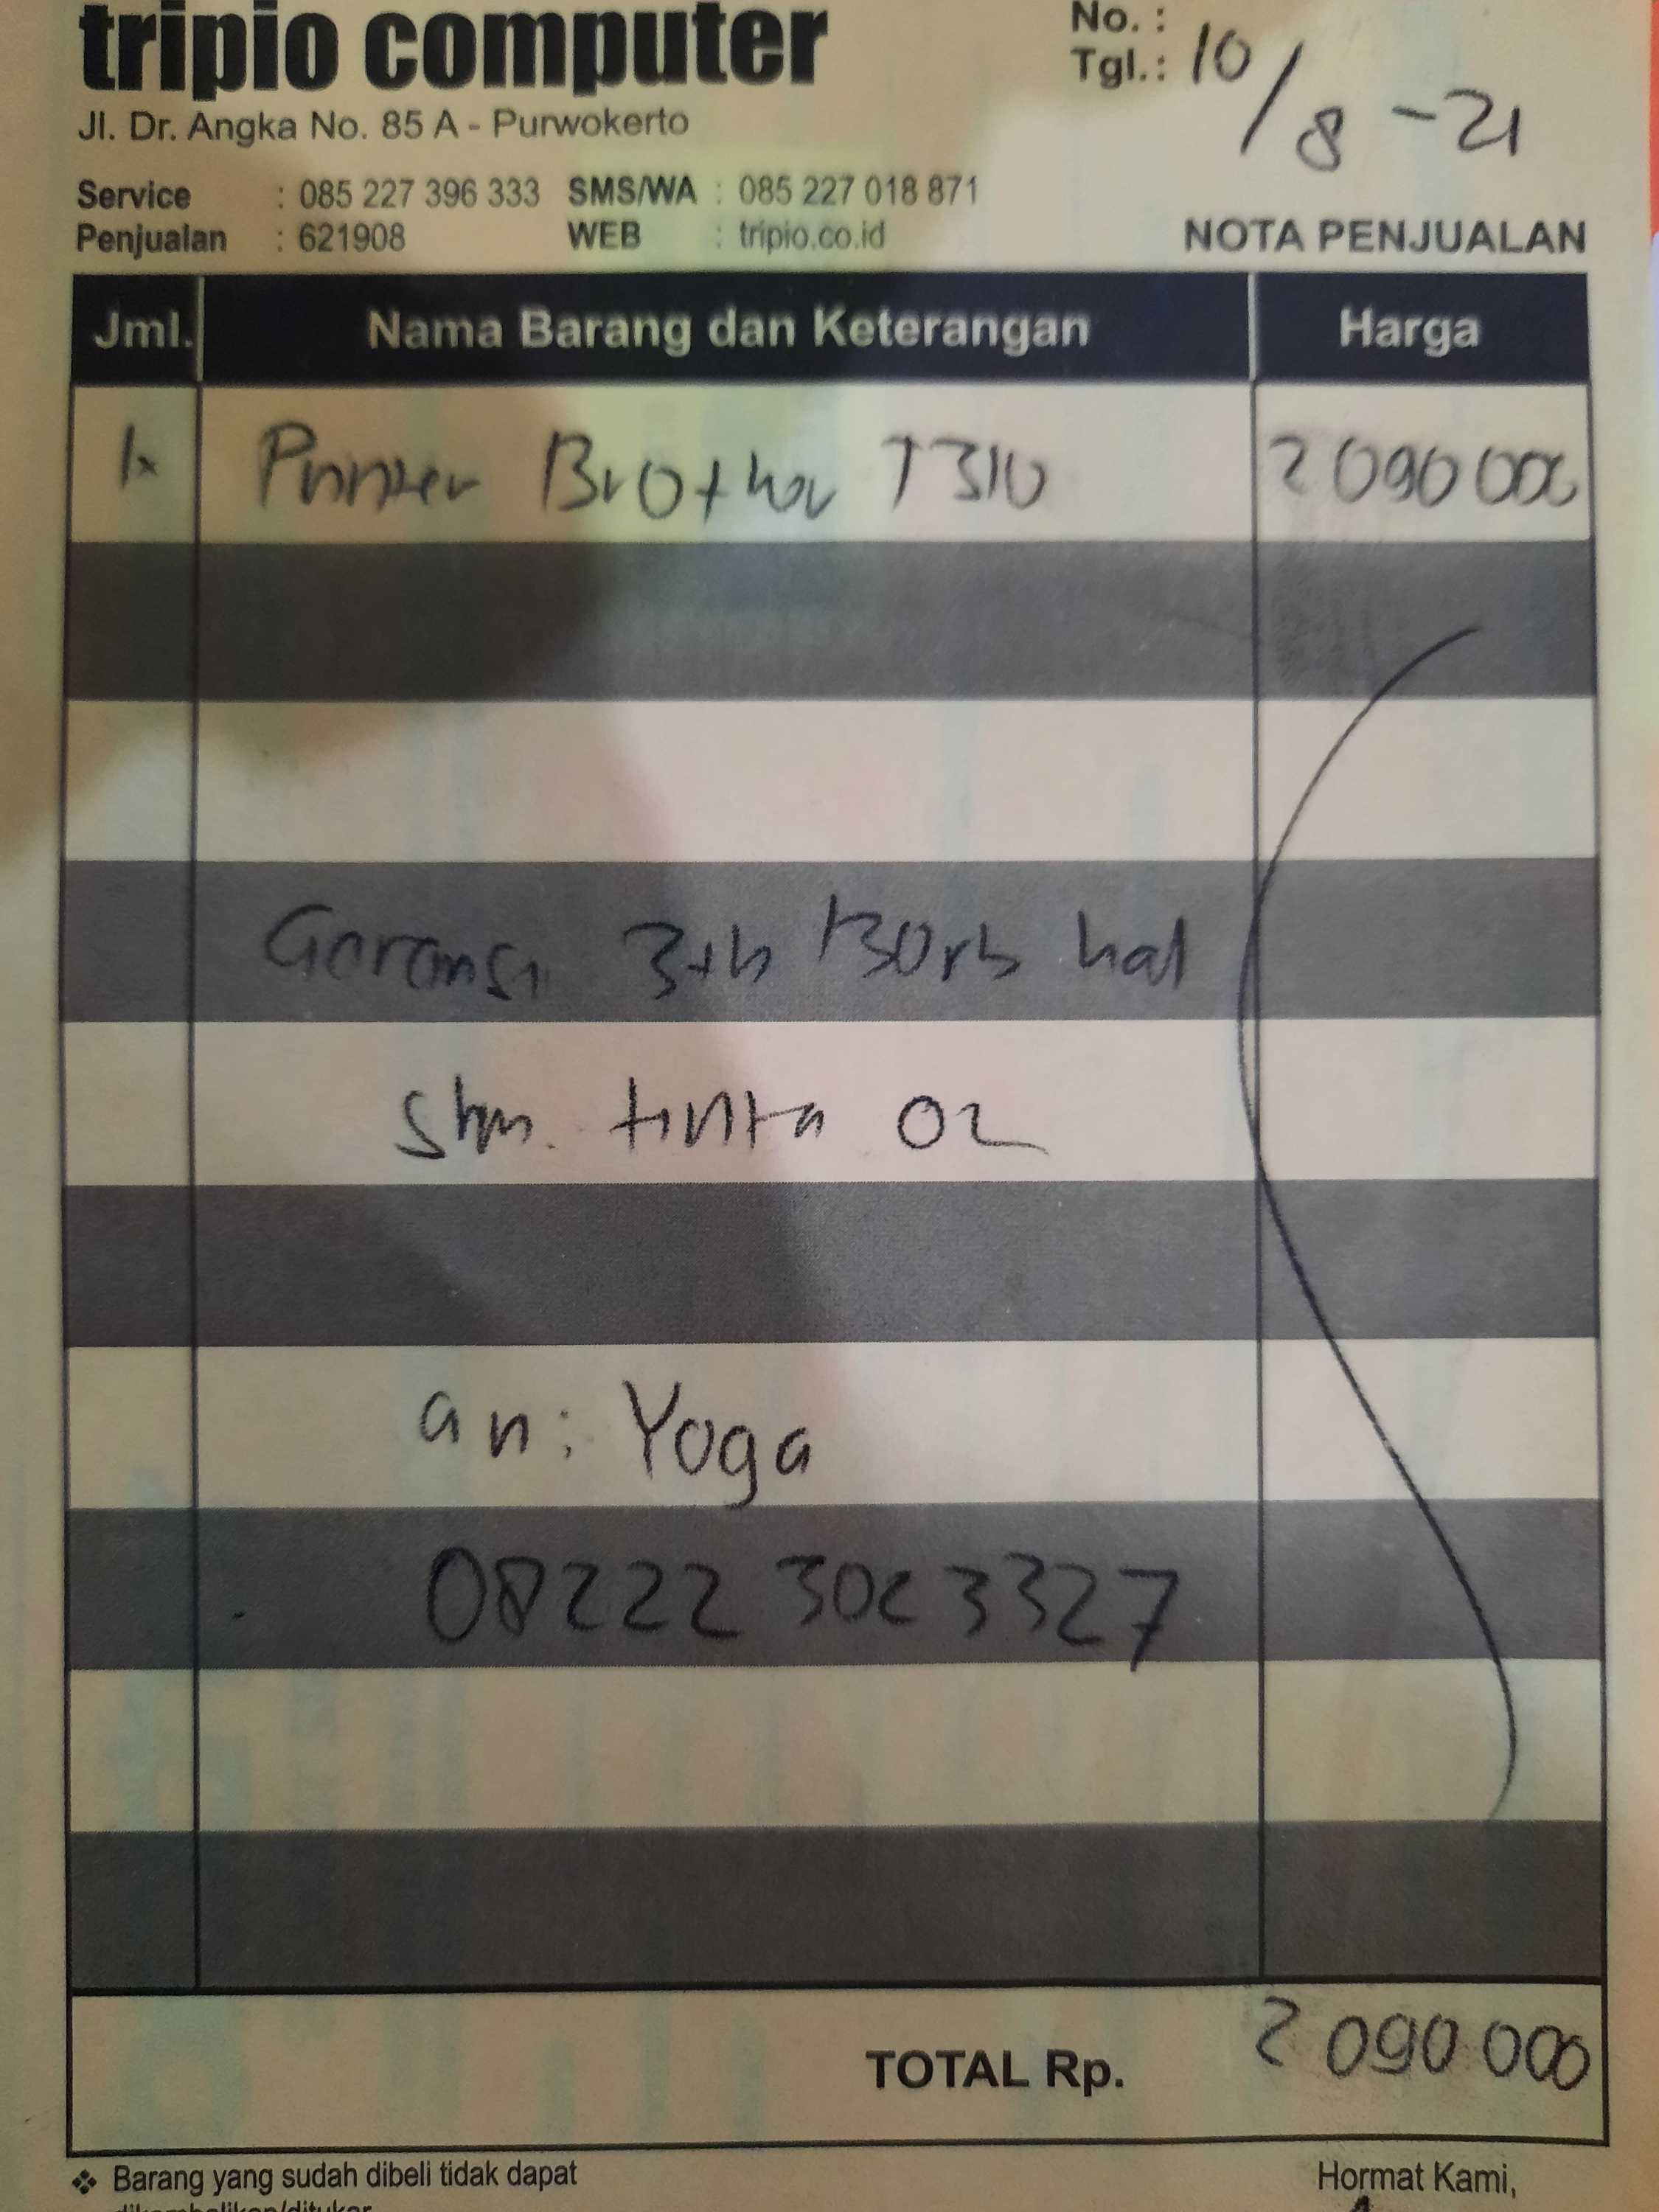 tripio computer
No. :
Tgl.: 10/8-21
Jl. Dr. Angka No. 85 A - Purwokerto
Service : 085 227 396 333 SMS/WA : 085 227 018 871
Penjualan : 621908 WEB : tripio.co.id
NOTA PENJUALAN
Jml. Nama Barang dan Keterangan Harga
1x Printer Brother T310 2 090 000
Garansi 3th /30rb hal
tinta
an: Yoga
TOTAL Rp. 2 090 000
❖ Barang yang sudah dibeli tidak dapat
Hormat Kami,
dikembalikan/ditukar